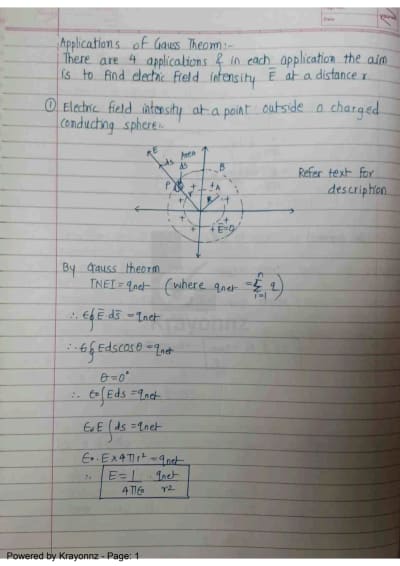 Date
Applications of Gauss Theorm:-
There are 4 applications & in each application the aim
is to find electric field intensity E̅ at a distance r
① Electric field intensity at a point outside a charged
conducting sphere:-
E
ds
Area
ds
B
P
r
+A
R
E̅=0
Refer text for
description
By Gauss theorm
TNEI = qnet (where qnet = Σ q)
n
i=1
∴ ε∮E̅·ds̅ = qnet
∴ ε∮Edscosθ = qnet
θ=0°
∴ ε₀∫Eds = qnet
ε₀E∫ds = qnet
ε₀·E×4πr² = qnet
∴ E = 1/4πε₀ qnet/r²
Krayonnz
Powered by Krayonnz - Page: 1